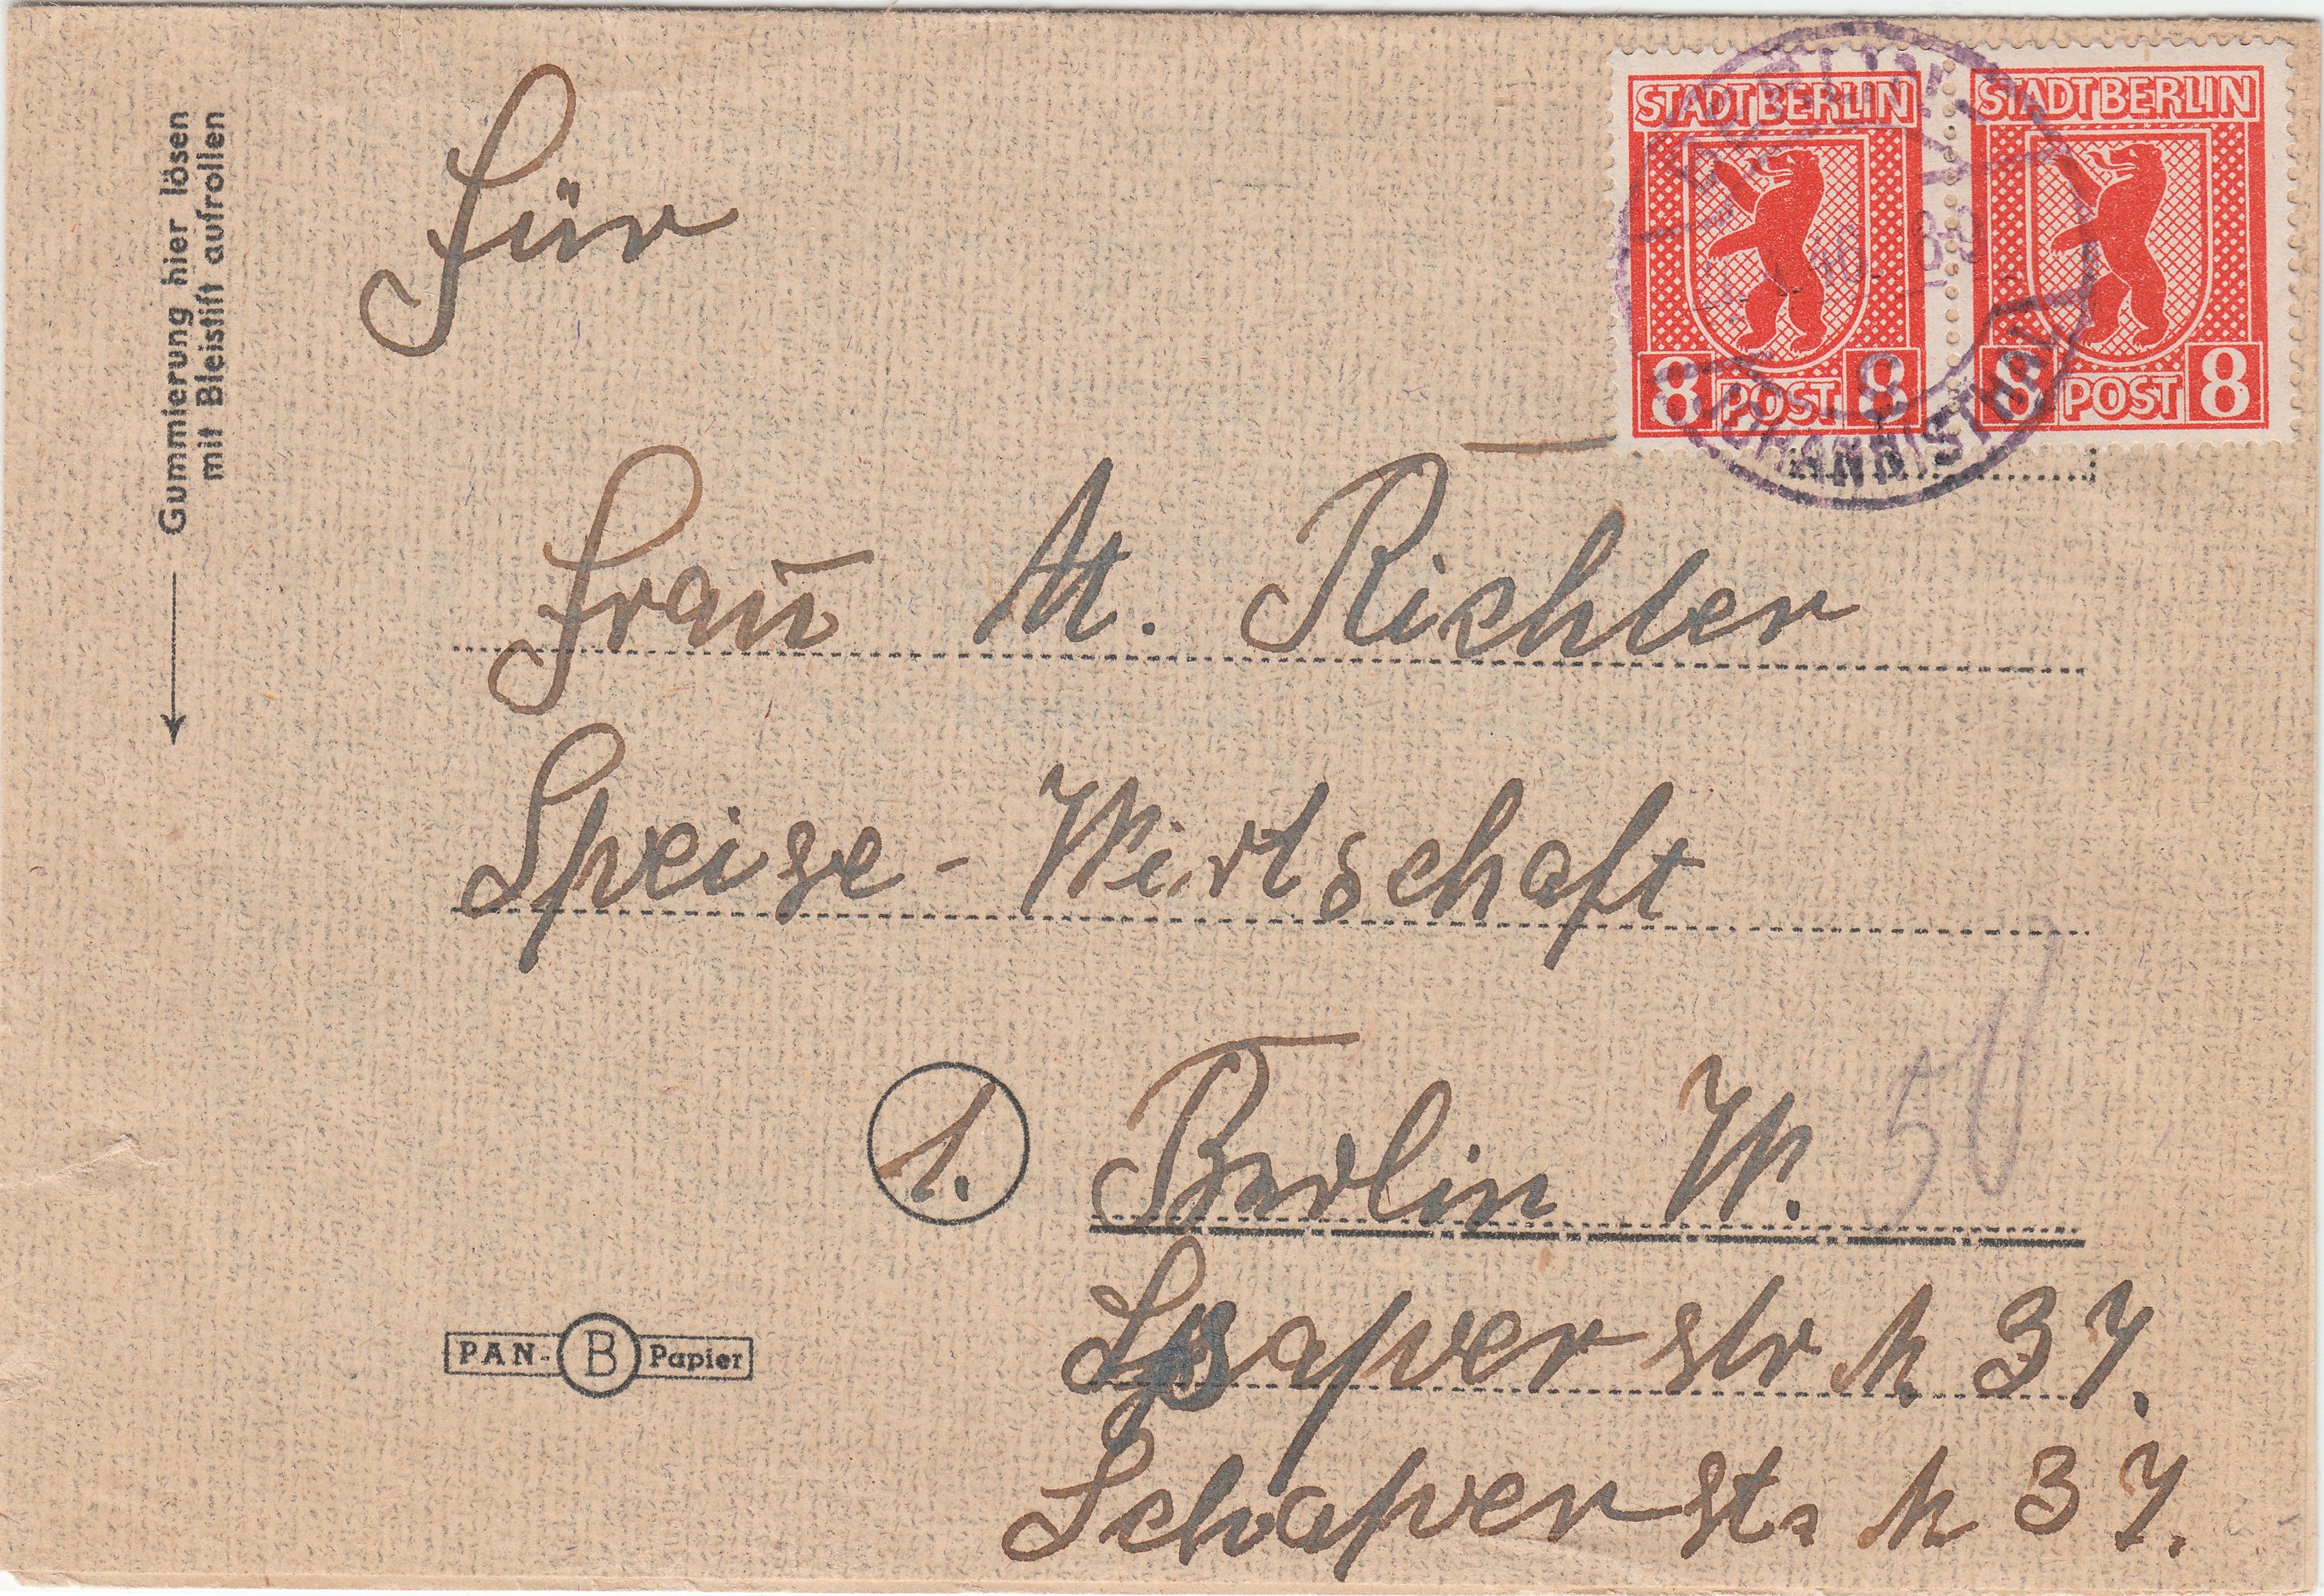 Gummierung hier lösen
mit Bleistift aufrollen
STADT BERLIN STADT BERLIN
8 POST 8 8 POST 8
BERLIN
JOHANNISTHAL
Für
Frau M. Richter
Speise-Wirtschaft
1. Berlin W. 50
aperstr N 37.
Schaperstr N 37.
PAN- B Papier